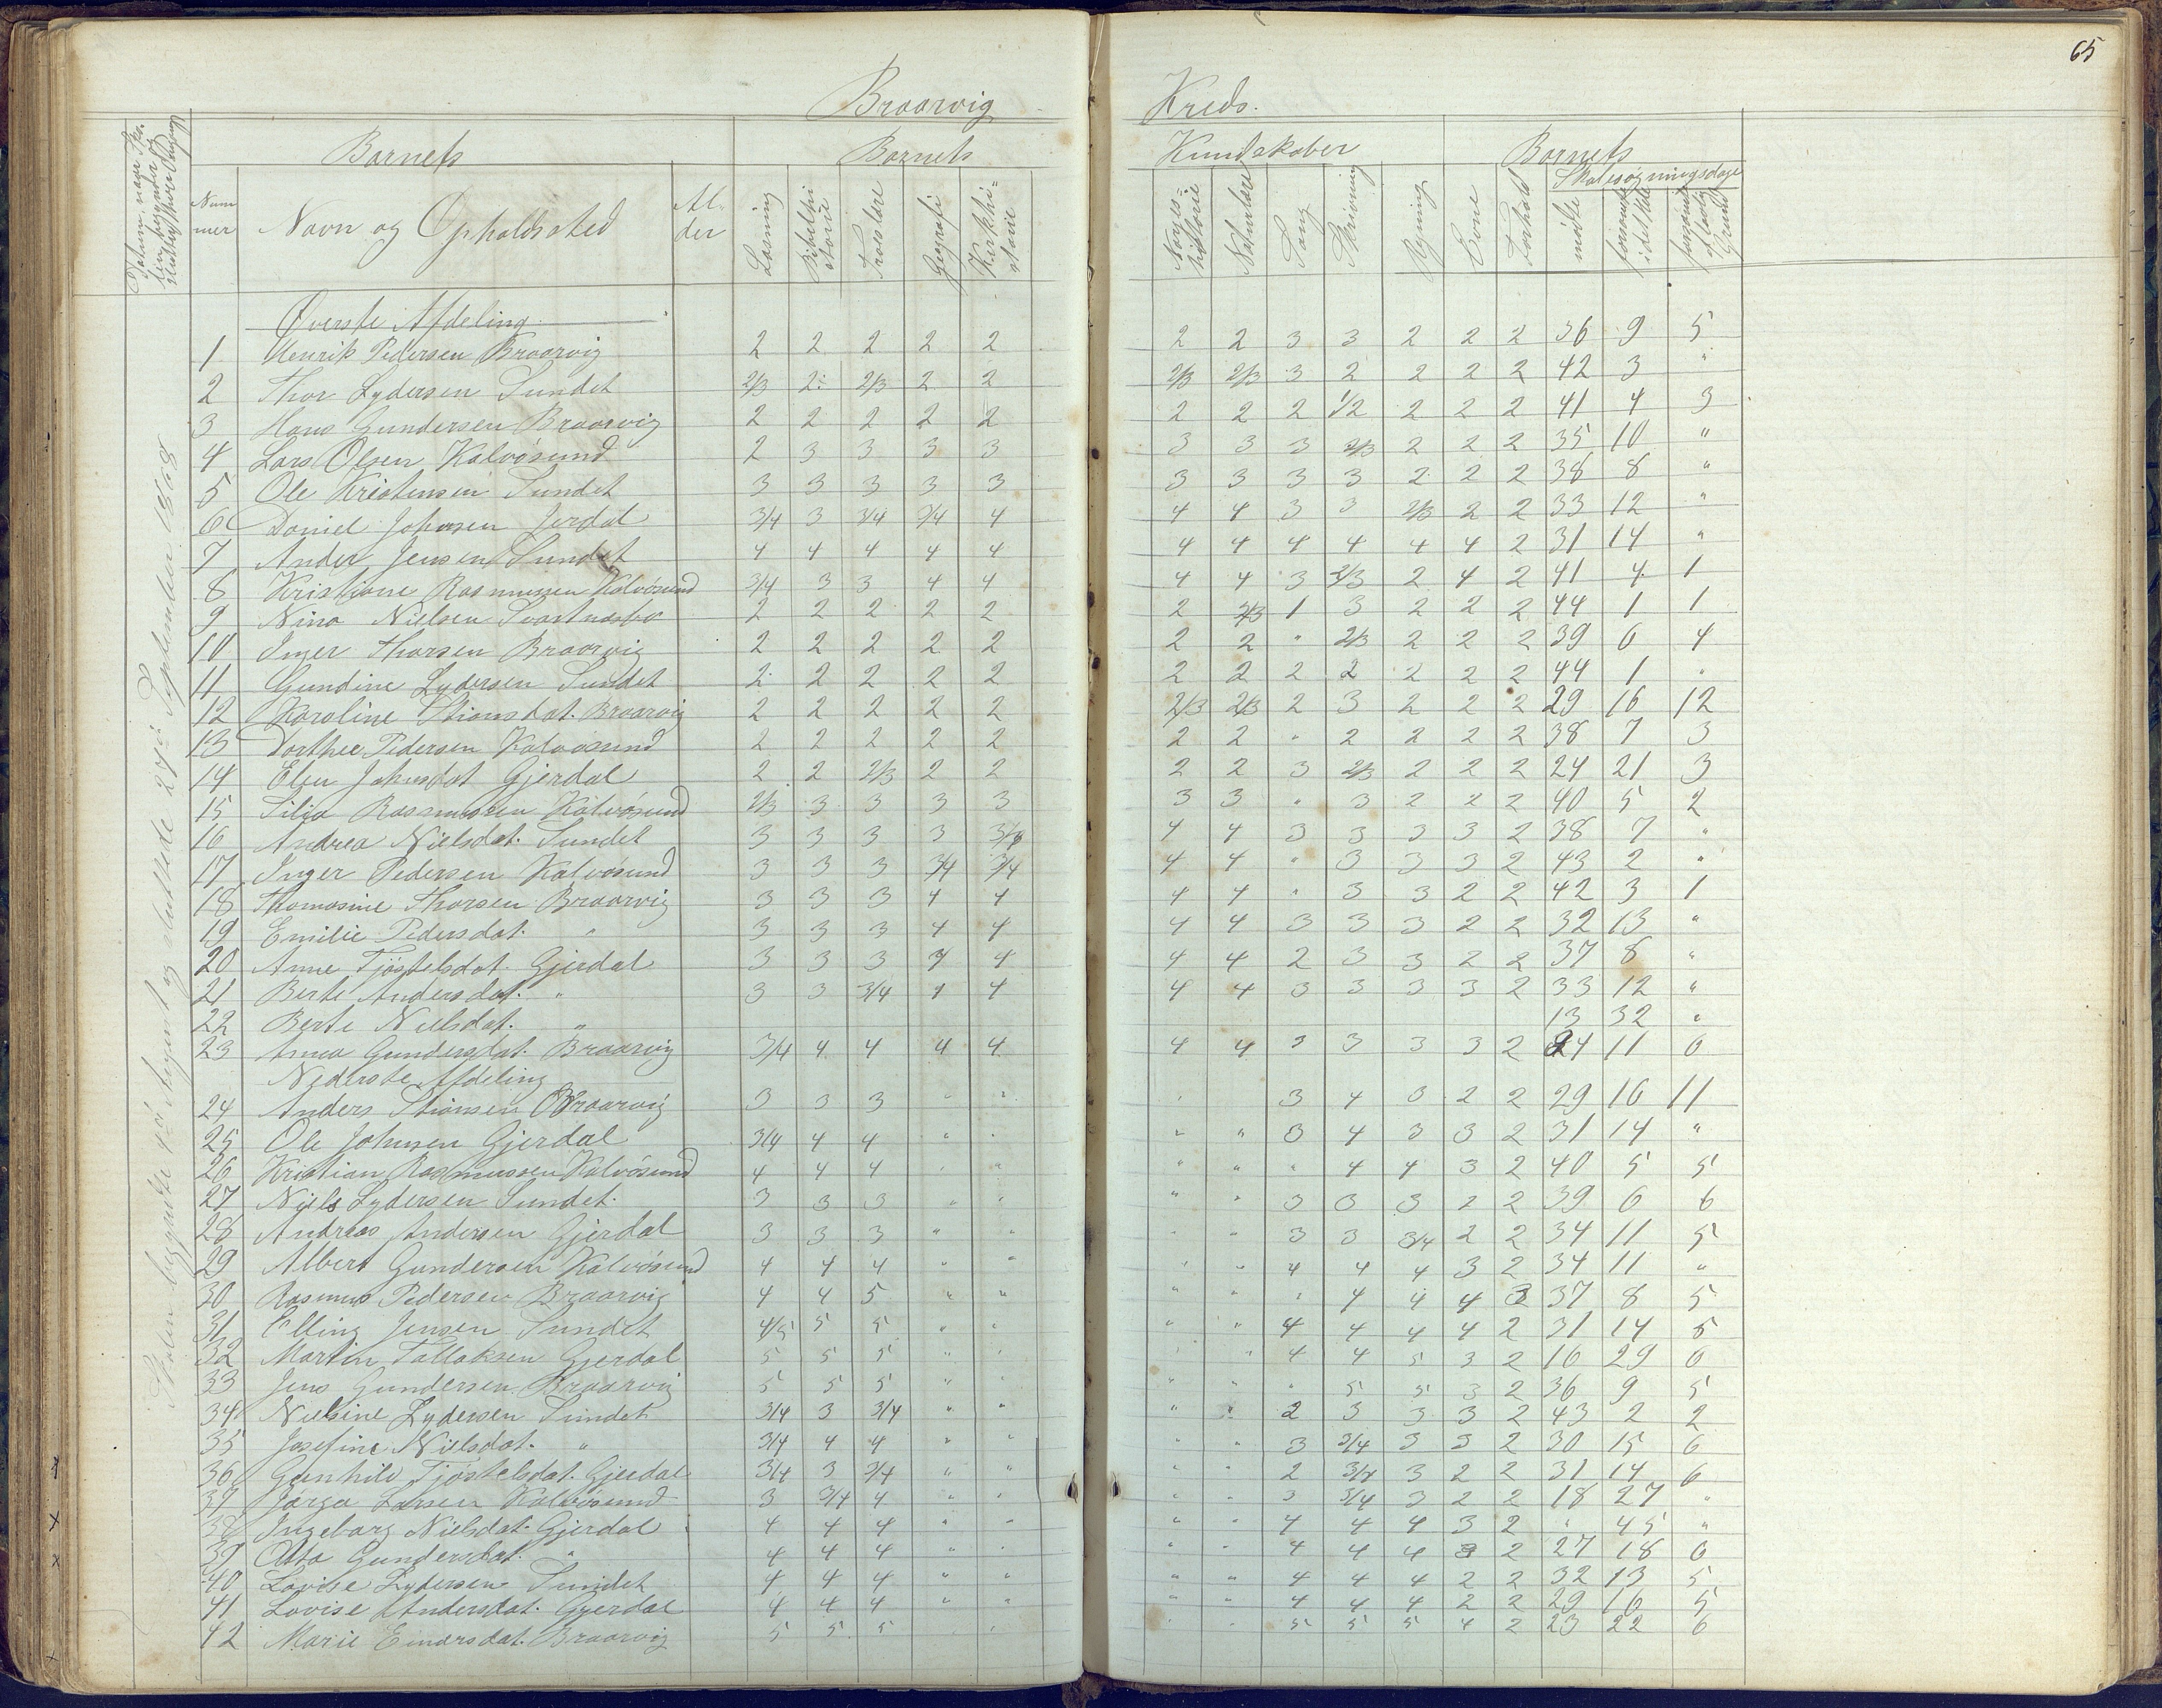 65
Braarvig Kreds.
Barnets Barnets Kundskaber Barnets
Skolesøgningsdage
Datum, naar Skolen begynder og slutter hver Gang
Nummer
Navn og Opholdssted
Alder
Læsning
Bibelhistorie
Troeslære
Geografi
Kirkehistorie
Norges-historie
Naturlære
Sang
Skrivning
Regning
Evne
Forhold
mødte
forsømte i det Hele
forsømte af lovlig Grund
Skolen begyndte August og sluttede 27de September 1868
Øverste Afdeling
1 Henrik Pedersen Braarvig 2 2 2 2 2 2 2 3 3 2 2 2 36 9 5
2 Thor Lydersen Sundet 2/3 2 2/3 2 2 2/3 2/3 3 2 2 2 2 42 3 "
3 Hans Gundersen Braarvig 2 2 2 2 2 2 2 2 1/2 2 2 2 41 4 3
4 Lars Olsen Kalvøsund 2 3 3 3 3 3 3 3 2/3 2 2 2 35 10 "
5 Ole Kristensen Sundet 3 3 3 3 3 3 3 3 3 2 2 2 38 8 "
6 Daniel Johnsen Jerdal 3/4 3 3/4 3/4 4 4 4 3 3 2/3 2 2 33 12 "
7 Ander Jensen Sundet 4 4 4 4 4 4 4 4 4 4 4 2 31 14 "
8 Kristiane Rasmussen Kalvøsund 3/4 3 3 4 4 4 4 3 2/3 2 4 2 41 4 1
9 Nina Nielsen Svartnæsbo 2 2 2 2 2 2 2/3 1 3 2 2 2 44 1 1
10 Inger Thorsen Braarvig 2 2 2 2 2 2 2 " 2/3 2 2 2 39 6 4
11 Gundine Lydersen Sundet 2 2 2 2 2 2 2 2 2 2 2 2 44 1 "
12 Karoline Stiansdat. Braarvig 2 2 2 2 2 2/3 2/3 2 3 2 2 2 29 16 12
13 Dorthee Pedersen Kalvøsund 2 2 2 2 2 2 2 " 2 2 2 2 38 7 3
14 Elen Johnsdat Gjerdal 2 2 2/3 2 2 2 2 3 2/3 2 2 2 24 21 3
15 Silia Rasmussen Kalvøsund 2/3 3 3 3 3 3 3 " 3 2 2 2 40 5 2
16 Andrea Nielsdat. Sundet 3 3 3 3 3/4 4 4 3 3 3 3 2 38 7 "
17 Inger Pedersen Kalvøsund 3 3 3 3/4 3/4 4 4 " 3 3 3 2 43 2 "
18 Thomasine Thorsen Braarvig 3 3 3 4 4 4 4 " 3 3 2 2 42 3 1
19 Emilie Pedersdat. " 3 3 3 4 4 4 4 3 3 3 2 2 32 13 "
20 Anne Tjøstelsdat. Gjerdal 3 3 3 4 4 4 4 2 3 3 2 2 37 8 "
21 Berte Andersdat. " 3 3 3/4 4 4 4 4 3 3 3 3 2 33 12 "
22 Berte Nielsdat. " 13 32 "
23 Anna Gundersdat. Braarvig 3/4 4 4 4 4 4 4 3 3 3 3 2 24 11 6
Nederste Afdeling
24 Anders Stiansen Braarvig 3 3 3 " " " 3 4 3 2 2 29 16 11
25 Ole Johnsen Gjerdal 3/4 4 4 " " " " 3 4 3 3 2 31 14 "
26 Kristian Rasmussen Kalvøsund 4 4 4 " " " " " 4 4 3 2 40 5 5
27 Niels Lydersen Sundet. 3 3 3 " " " " 3 3 3 2 2 39 6 6
28 Andreas Andersen Gjerdal 3 3 3 " " " " 3 3 3/4 2 2 34 11 5
29 Albert Gundersen Kalvøsund 4 4 4 " " " " 4 4 4 3 2 34 11 "
30 Rasmus Pedersen Braarvig 4 4 5 " " " " " 4 4 4 3 37 8 5
31 Elling Jensen Sundet 4/5 5 5 " " " " 4 4 4 4 2 31 14 8
32 Martin Tallaksen Gjerdal 5 5 5 " " " " 4 4 5 3 2 16 29 6
33 Jens Gundersen Braarvig 5 5 5 " " " " " 5 5 3 2 36 9 5
34 Nielsine Lydersen Sundet 3/4 3 3/4 " " " " 2 3 3 3 2 43 2 2
35 Josefine Nielsdat. " 3/4 4 4 " " " " 3 3/4 3 3 2 30 15 6
36 Gunhild Tjøstelsdat. Gjerdal 3/4 3 3/4 " " " " 2 3/4 3 2 2 31 14 6
37 Jørga Larsen Kalvøsund 3 3/4 4 " " " " 3 3/4 3 2 2 18 27 "
38 Ingeborg Nielsdat. Gjerdal 4 4 4 " " " " 4 4 4 3 2 " 45 "
39 Alta Gundersdat. " 4 4 4 " " " " 4 4 4 3 2 27 18 6
40 Lovise Lydersen Sundet 4 4 4 " " " " 4 4 4 2 2 32 13 5
41 Lovise Andersdat. Gjerdal 4 4 4 " " " " 4 4 4 2 2 29 16 5
42 Marie Einersdat. Braarvig 5 5 5 " " " " 5 5 5 4 2 23 22 6